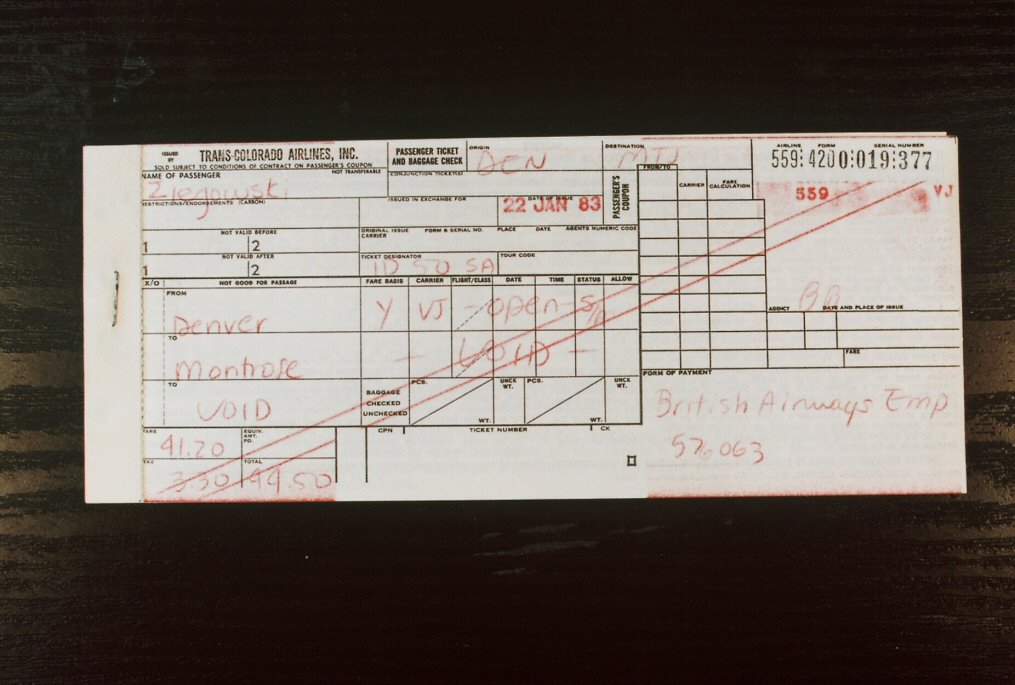 ISSUED BY TRANS-COLORADO AIRLINES, INC.
SOLD SUBJECT TO CONDITIONS OF CONTRACT ON PASSENGER'S COUPON
PASSENGER TICKET AND BAGGAGE CHECK
ORIGIN DEN
DESTINATION MTJ
AIRLINE FORM SERIAL NUMBER
559:4200:019:377
NAME OF PASSENGER NOT TRANSFERABLE
CONJUNCTION TICKET(S)
FROM/TO CARRIER FARE CALCULATION
559 VJ
RESTRICTIONS/ENDORSEMENTS (CARBON)
ISSUED IN EXCHANGE FOR
DATE OF ISSUE
22 JAN 83
PASSENGER'S COUPON
NOT VALID BEFORE
1 2
ORIGINAL ISSUE FORM & SERIAL NO. PLACE DATE AGENTS NUMERIC CODE
CARRIER
NOT VALID AFTER
1 2
TICKET DESIGNATOR ID 50 SA
TOUR CODE
X/O NOT GOOD FOR PASSAGE FARE BASIS CARRIER FLIGHT/CLASS DATE TIME STATUS ALLOW
FROM
Denver Y VJ - open - S/A
TO
Montrose - VOID -
TO
VOID
BAGGAGE CHECKED UNCHECKED
PCS. WT. UNCK WT. PCS. WT. UNCK WT.
AGENCY DATE AND PLACE OF ISSUE
FARE
FORM OF PAYMENT
British Airways Emp
576063
FARE 41.20
EQUIV. AMT. PD.
TAX 3.30
TOTAL 44.50
CPN TICKET NUMBER CK